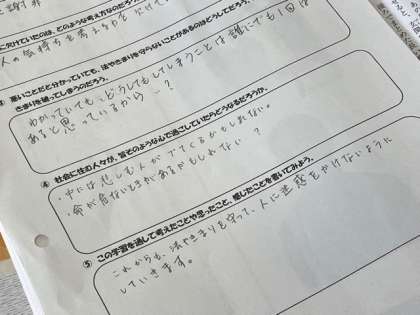 に欠けていたのは、どのような考え方なのだろう
人の気持ちを考える心を欠けて
③ 悪いことだと分かっていても、法やきまりを守らないことがあるのはどうしてだろう。
きまりを破ってしまうのだろう。
わかっていても、どうしてもしてしまうことは誰にでも1回は
あると思っているから…?
④ 社会に住む人々が、皆そのような心で過ごしていたらどうなるだろうか。
・中には悲しむ人がでてくるかもしれない。
・命が危ないときがあるかもしれない?
⑤ この学習を通して考えたことや思ったこと、感じたことを書いてみよう。
これからも、法やきまりを守って、人に迷惑をかけないように
していきます。